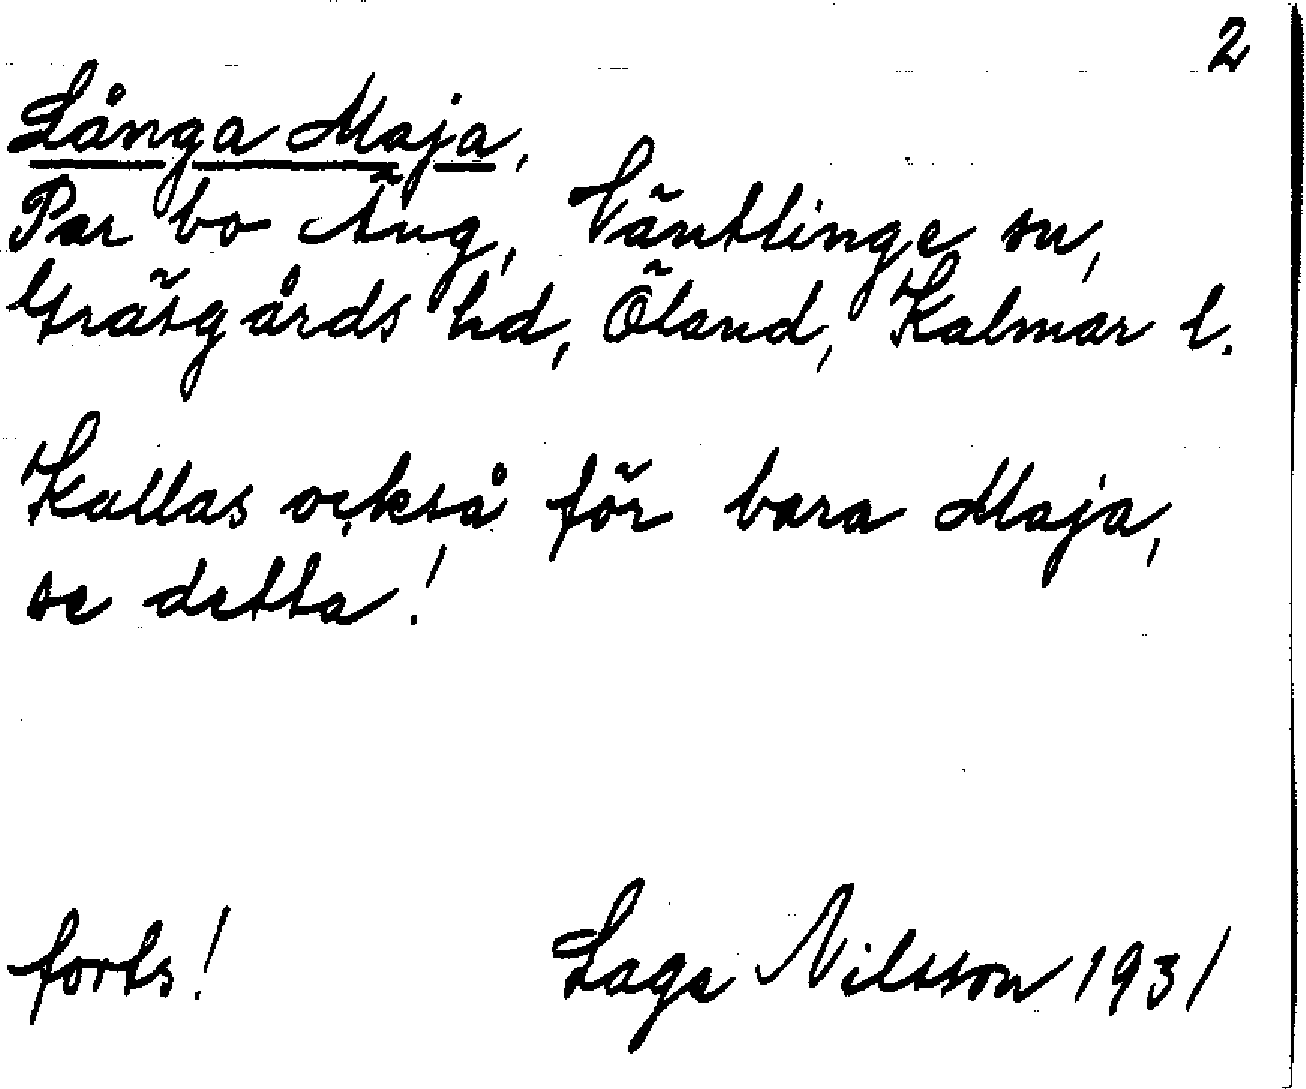 2
Långa Maja,
Par bo Äng, Väntlinge sn,
Gräsgårds hd, Öland, Kalmar l.
Kallas också för bara Maja,
se detta!
forts! Lage Nilsson 1931